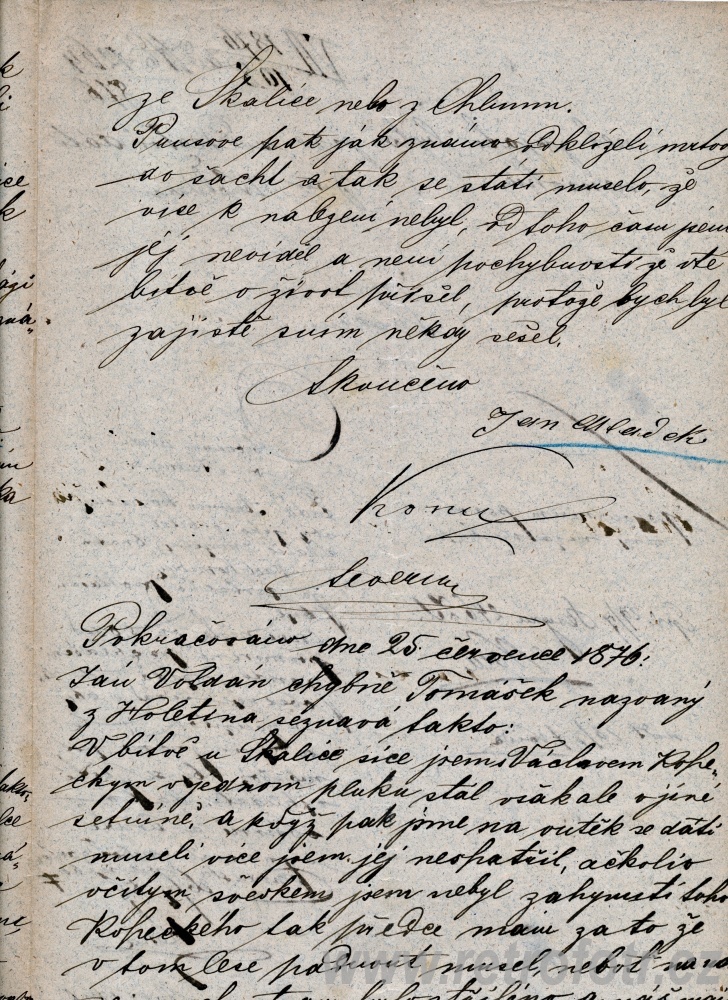 ze Skalice nebo z Chlumu.
Prusové pak jak známo odklízeli mrtvo
do šacht a tak se státi muselo, že
více k nalezení nebyl, od toho času jsem
jej neviděl a není pochybnosti že v té
bitvě o život přišel, protože bych byl
zajistě s ním někdy sešel.
Skončeno
Jan Mládek
Severin
Pokračováno dne 25 července 1876.
Jan Voldán chybně Tomášek nazvaný
z Holetína seznává takto:
V bitvě u Skalice sice jsem s Václavem Kope-
ckým v jednom pluku stál však ale v jiné
setnině, a když pak jsme na outěk se dáti
museli více jsem jej neshatřil, ačkoliv
očitým svědkem jsem nebyl zahynutí toho
Kopeckého tak předce mám za to že
v tom lese padnout musel, neboť na
www.rotfotr.cz